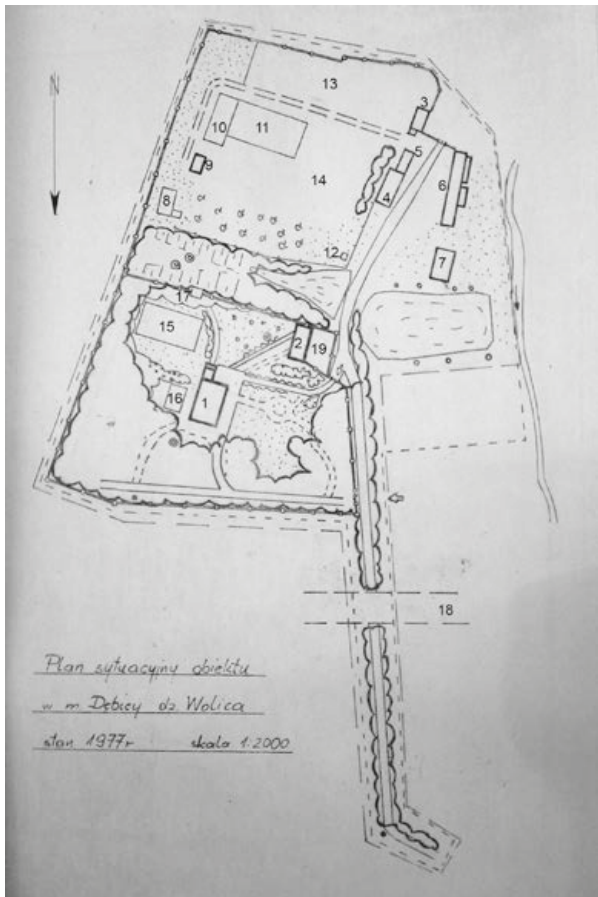 N
13
3
10
11
5
9
14
6
4
8
12
7
17
15
2
19
16
1
18
Plan sytuacyjny obiektu
w m. Dębicy dz. Wolica
stan 1977r skala 1:2000